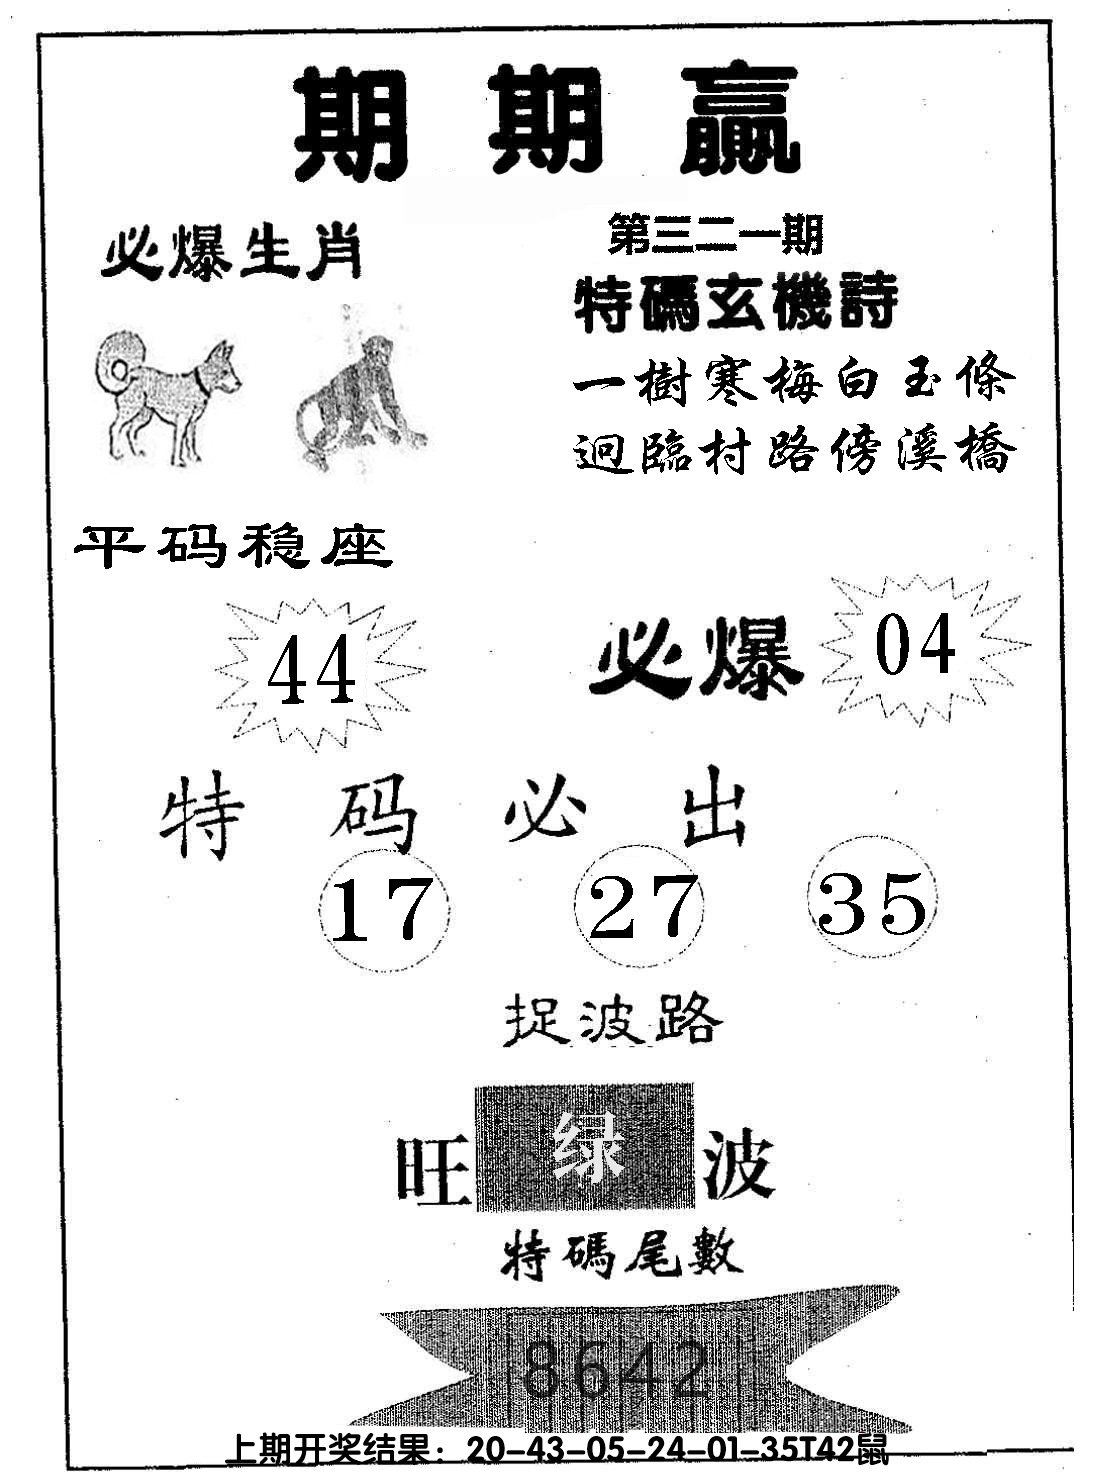 期期赢
必爆生肖
第三二一期
特碼玄機詩
一樹寒梅白玉條
迥臨村路傍溪橋
平码稳座
44
必爆
04
特码必出
17 27 35
捉波路
旺绿波
特碼尾數
8642
上期开奖结果：20-43-05-24-01-35T42鼠